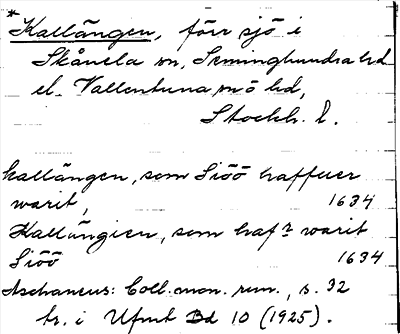 * Kallängen, förr sjö i
Skånela sn, Seminghundra hd
el. Vallentuna sn o hd,
Stockh. l.
kallängen, som Siöö haffuer
warit, 1634
Kallängien, som hafr warit
Siöö 1634
Aschaneus: Coll. mon. run., s. 32
tr. i Ufmt Bd 10 (1925).